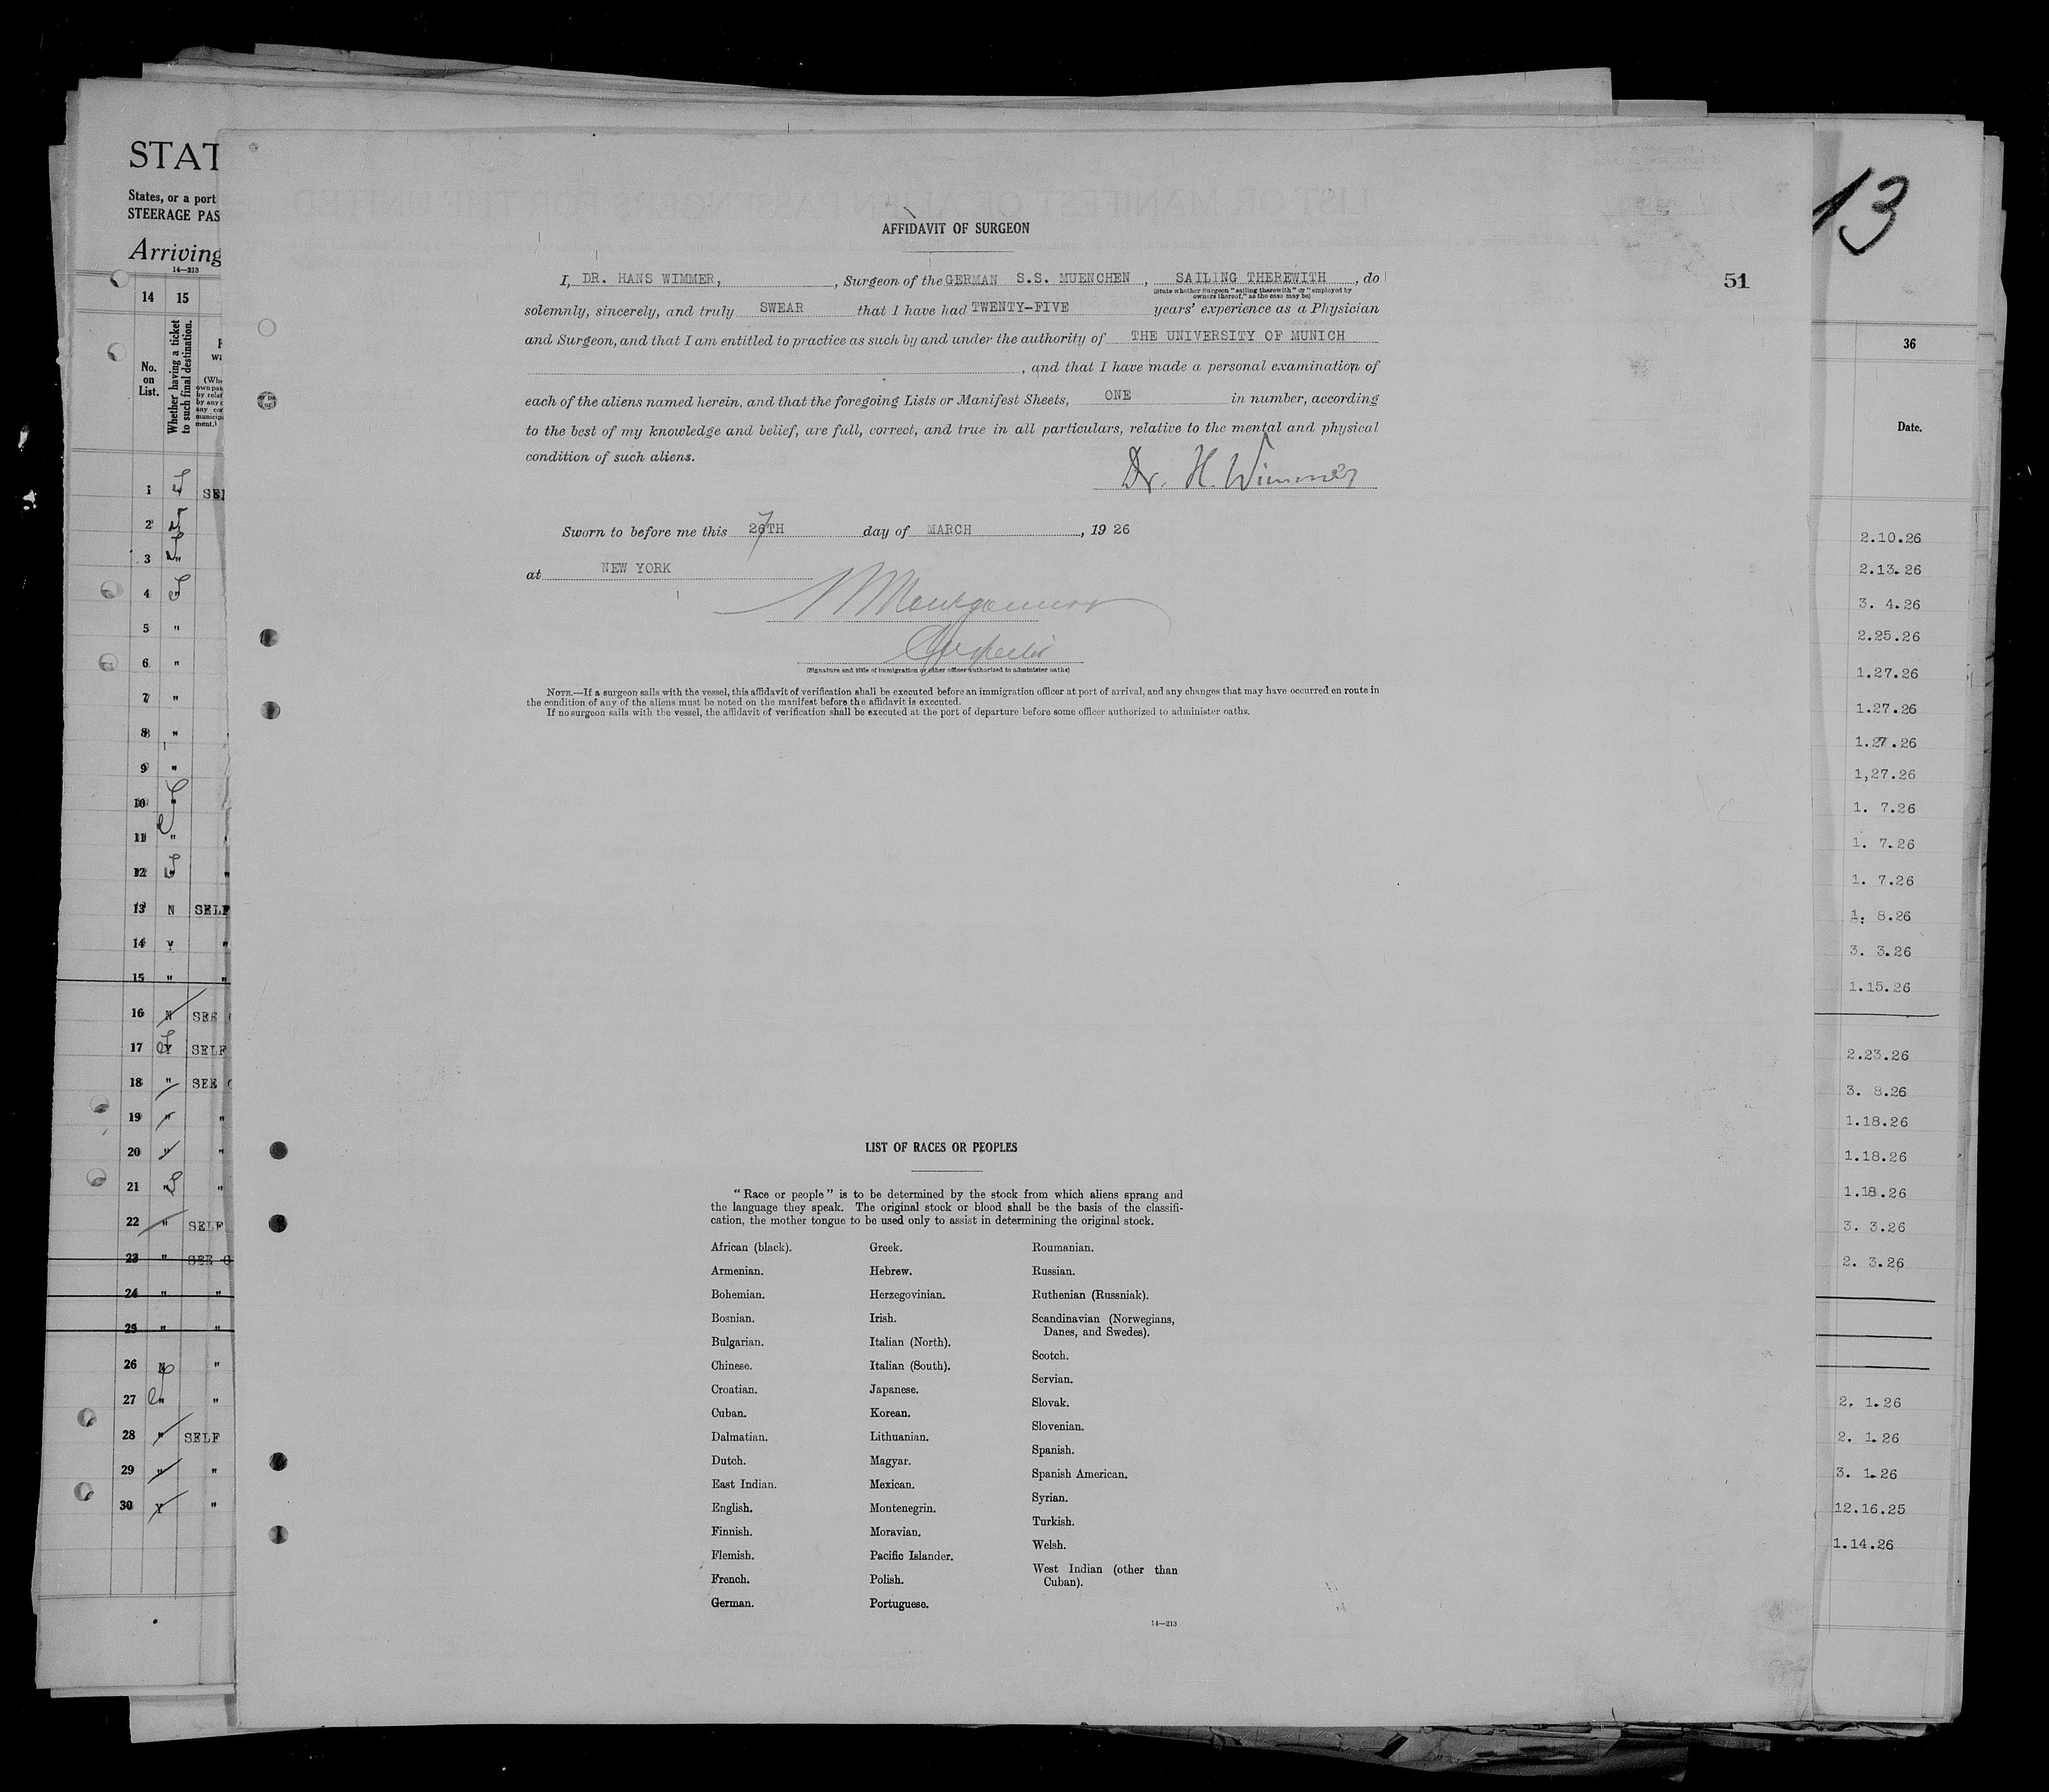 STAT
States, or a port
STEERAGE PAS
Arriving
14—213
14 15
No. on List.
Whether having a ticket to such final destination.
1 SE
2
3 "
4
5 "
6 "
7 "
8 "
9 "
10 "
11 "
12 "
13 N SELF
14 Y "
15 " "
16 N SEE
17 Y SELF
18 " SEE
19 " "
20 " "
21 " "
22 " SELF
23 " SEE
24 " "
25 " "
26 N "
27 " "
28 " SELF
29 " "
30 Y "
AFFIDAVIT OF SURGEON
51
I, DR. HANS WIMMER, , Surgeon of the GERMAN S.S. MUENCHEN , SAILING THEREWITH , do
(State whether Surgeon "sailing therewith" or "employed by
owners thereof," as the case may be)
solemnly, sincerely, and truly SWEAR that I have had TWENTY-FIVE years' experience as a Physician
and Surgeon, and that I am entitled to practice as such by and under the authority of THE UNIVERSITY OF MUNICH
, and that I have made a personal examination of
each of the aliens named herein, and that the foregoing Lists or Manifest Sheets, ONE in number, according
to the best of my knowledge and belief, are full, correct, and true in all particulars, relative to the mental and physical
condition of such aliens.
Dr. H. Wimmer
Sworn to before me this 267TH day of MARCH , 19 26
at NEW YORK
Montgomery
Inspector
(Signature and title of immigration or other officer authorized to administer oaths)
NOTE.—If a surgeon sails with the vessel, this affidavit of verification shall be executed before an immigration officer at port of arrival, and any changes that may have occurred en route in
the condition of any of the aliens must be noted on the manifest before the affidavit is executed.
If no surgeon sails with the vessel, the affidavit of verification shall be executed at the port of departure before some officer authorized to administer oaths.
LIST OF RACES OR PEOPLES
"Race or people" is to be determined by the stock from which aliens sprang and
the language they speak. The original stock or blood shall be the basis of the classifi-
cation, the mother tongue to be used only to assist in determining the original stock.
African (black).
Armenian.
Bohemian.
Bosnian.
Bulgarian.
Chinese.
Croatian.
Cuban.
Dalmatian.
Dutch.
East Indian.
English.
Finnish.
Flemish.
French.
German.
Greek.
Hebrew.
Herzegovinian.
Irish.
Italian (North).
Italian (South).
Japanese.
Korean.
Lithuanian.
Magyar.
Mexican.
Montenegrin.
Moravian.
Pacific Islander.
Polish.
Portuguese.
Roumanian.
Russian.
Ruthenian (Russniak).
Scandinavian (Norwegians,
Danes, and Swedes).
Scotch.
Servian.
Slovak.
Slovenian.
Spanish.
Spanish American.
Syrian.
Turkish.
Welsh.
West Indian (other than
Cuban).
14—213
13
36
Date.
2.10.26
2.13.26
3. 4.26
2.25.26
1.27.26
1.27.26
1.27.26
1,27.26
1. 7.26
1. 7.26
1. 7.26
1. 8.26
3. 3.26
1.15.26
2.23.26
3. 8.26
1.18.26
1.18.26
1.18.26
3. 3.26
2. 3.26
2. 1.26
2. 1.26
3. 1.26
12.16.25
1.14.26